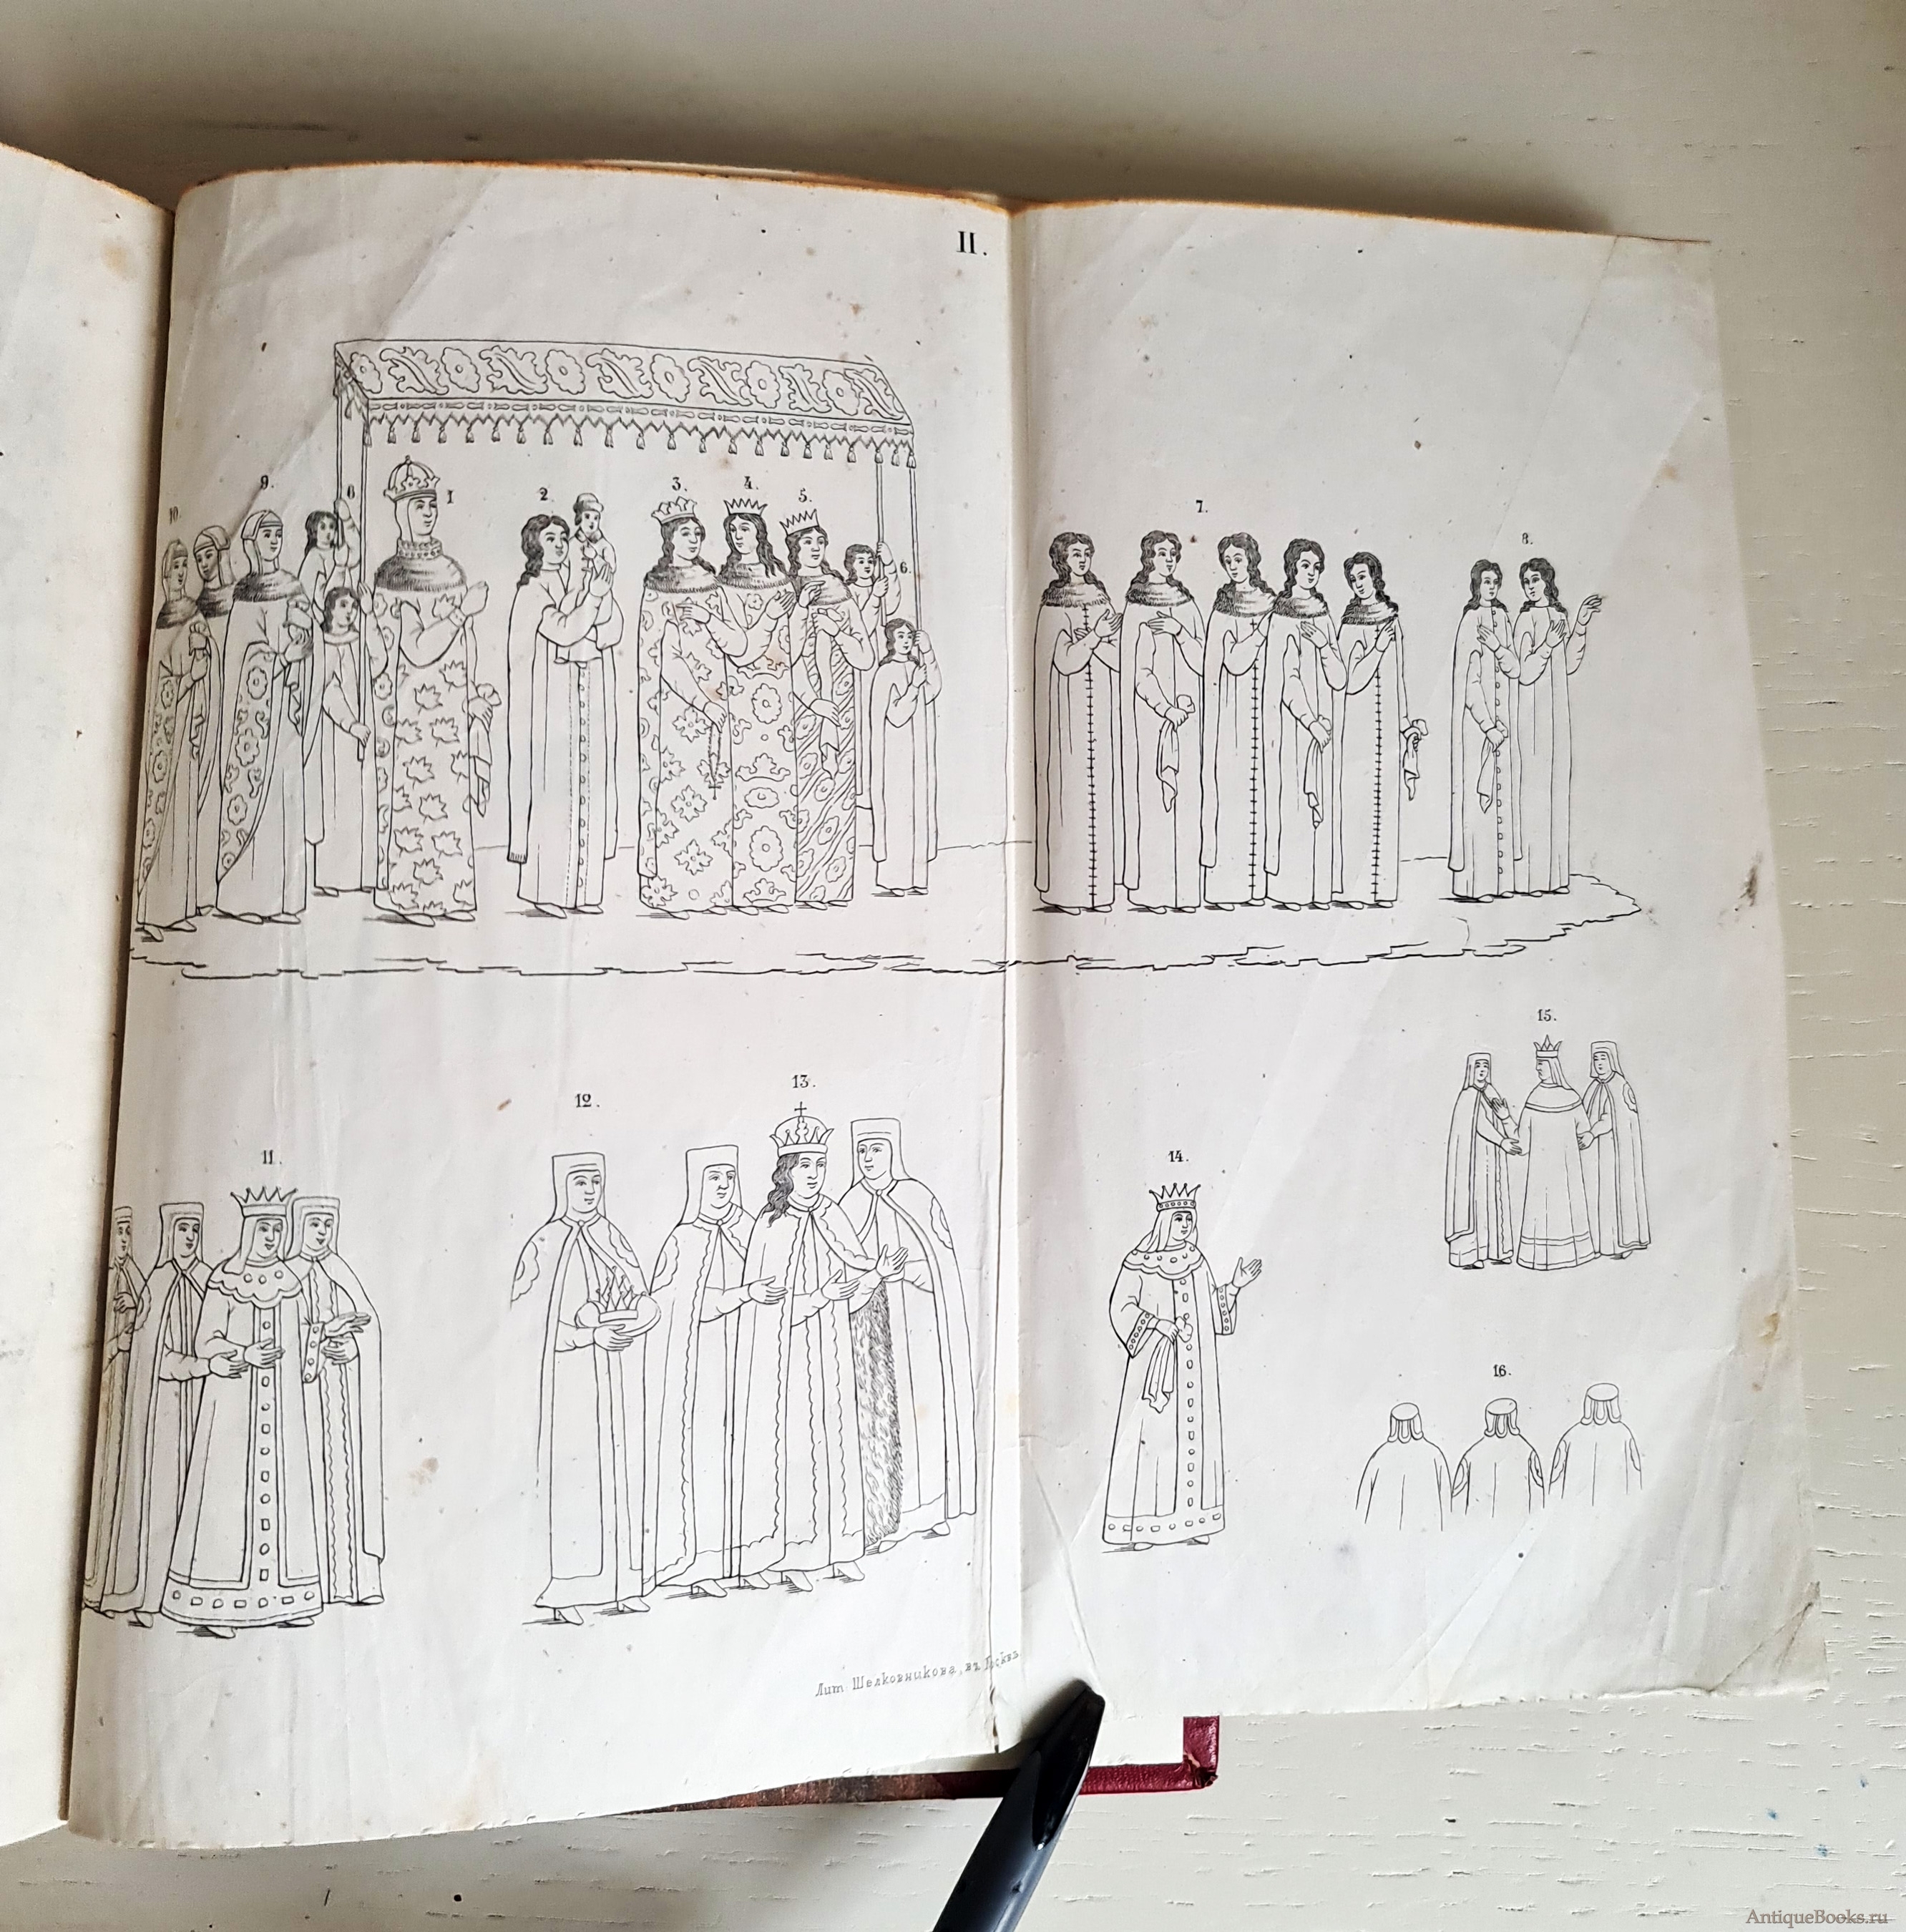 II.
10. 9. 6 1 2. 3. 4. 5. 6. 7. 8.
11. 12. 13. 14. 15.
16.
Лит Шелковникова, въ
AntiqueBooks.ru